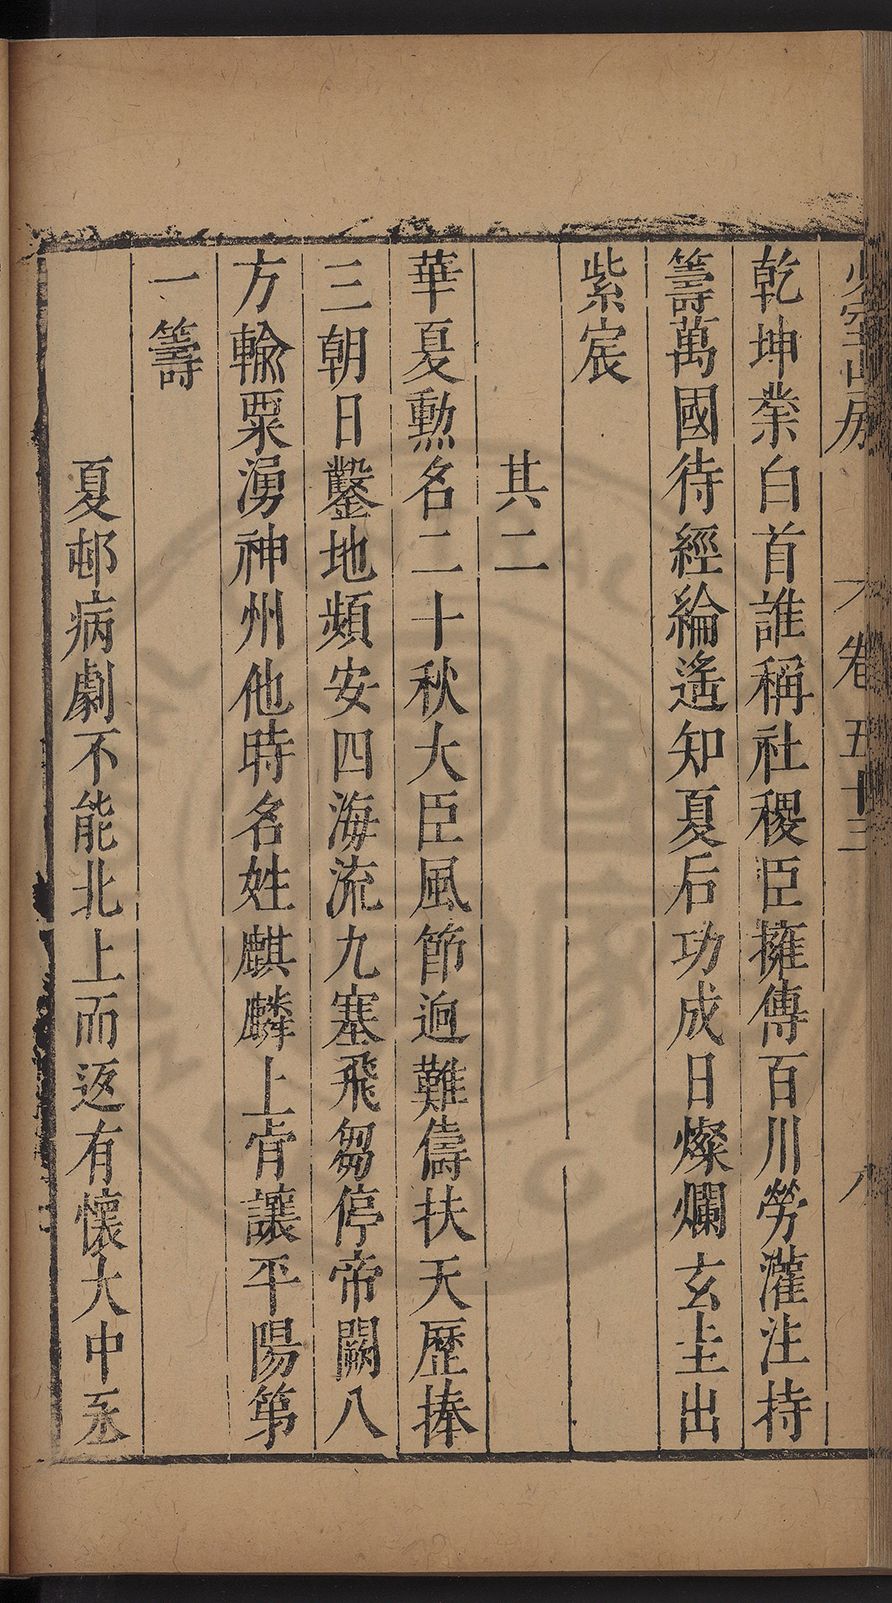 少室山房　卷五十三　八
乾坤業白首誰稱社稷臣擁傳百川勞灌注持
籌萬國待經綸遙知夏后功成日燦爛玄圭出
紫宸
其二
華夏勲名二十秋大臣風節逈難儔扶天歷捧
三朝日鑿地頻安四海流九塞飛芻停帝闕八
方輸粟湧神州他時名姓麒麟上肯讓平陽第
一籌
夏邨病劇不能北上而返有懷大中丞